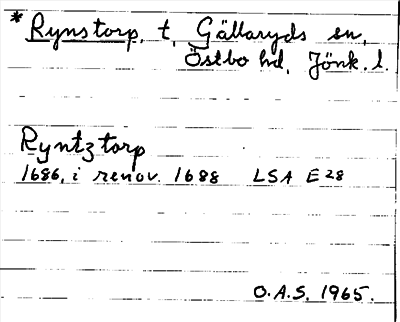 * Rynstorp, t, Gällaryds sn,
Östbo hd, Jönk. l.
Ryntztorp
1686, i renov. 1688 LSA E28
O.A.S. 1965.